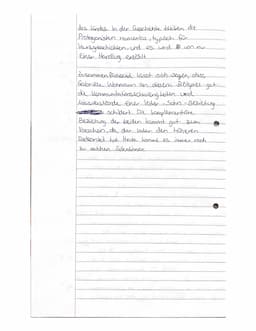 des Kindes. In der Geschichte bleiben die
Protagonisten namenlos, typisch für
Kurzgeschichten und es wird von nur
einer Handlung erzählt.
Zusammenfassend lässt sich sagen, dass
Gabriele Wohmann an diesem Beispiel gut
die Kommunikationsschwierigkeiten und
Missverständn einer Vater - Sohn - Beziehung
schildert. Die komplementäre
Beziehung der beiden kommt gut zum
Vorschein, da der Vater den höheren
Stellenwert hat. Heute kommt es immer noch
zu solchen